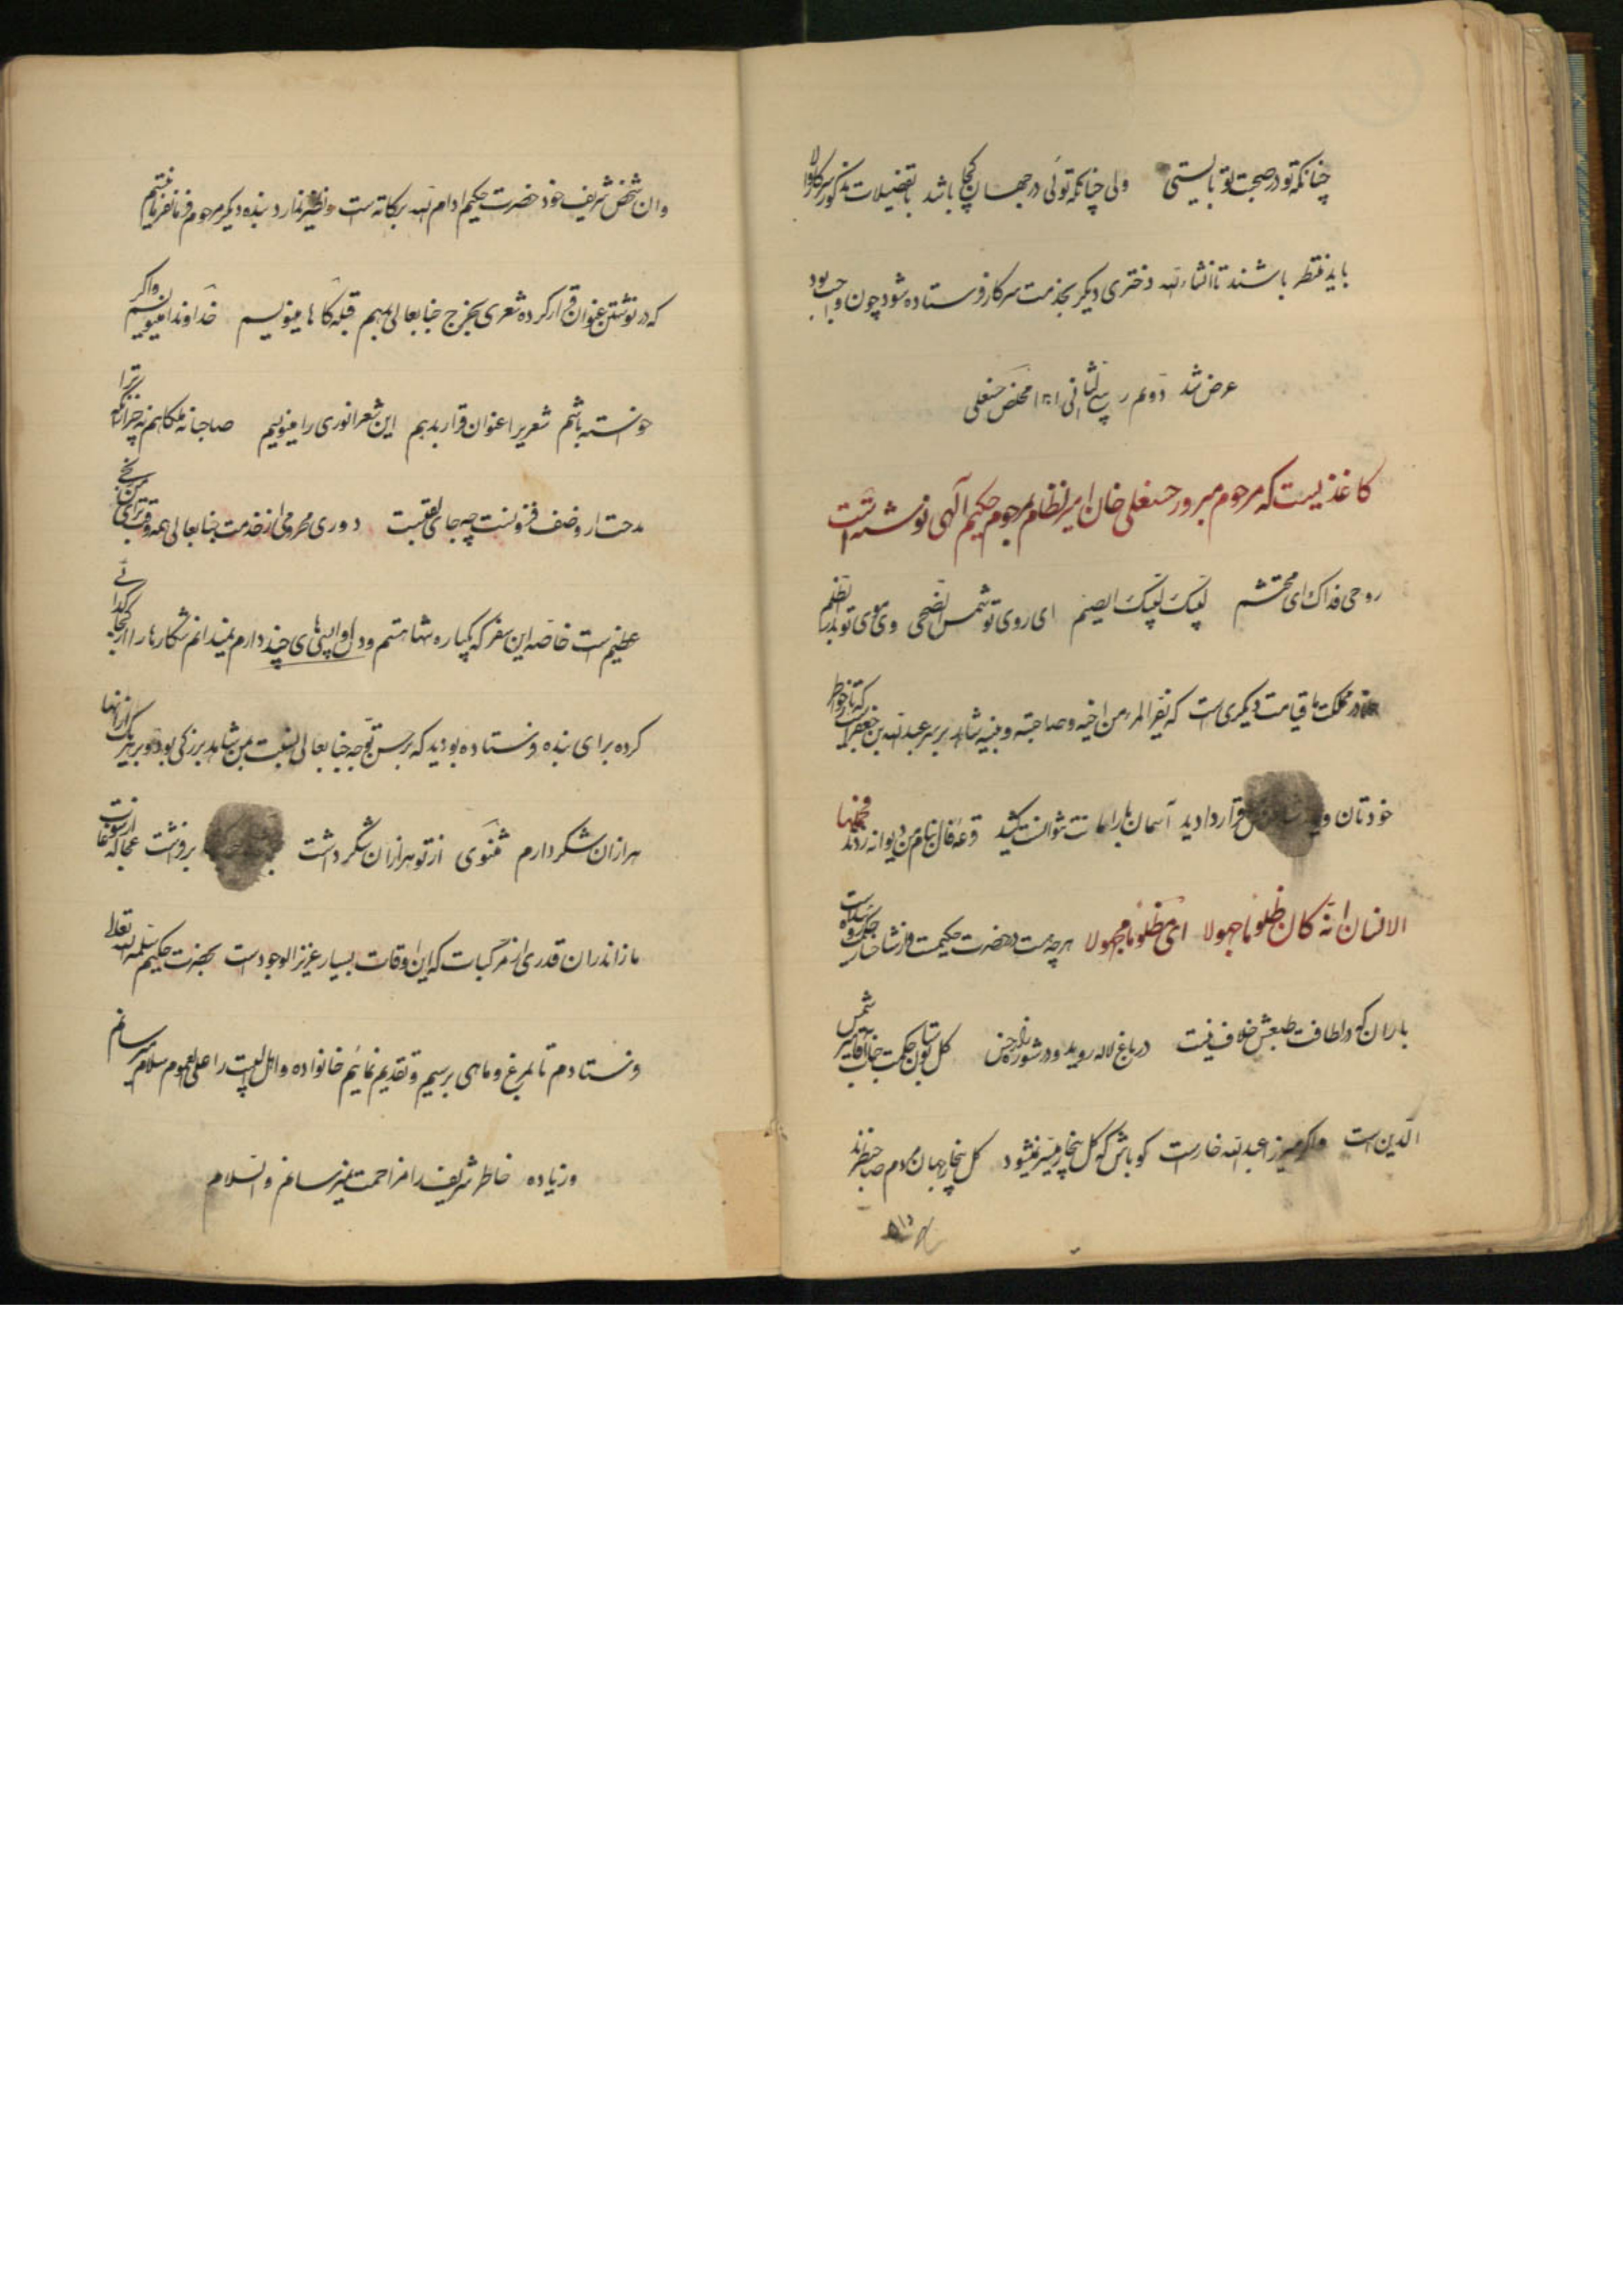 چنانکه تو در صحبت تو بایستی ولی چنانکه توئی در جهان کجا باشد با تفضیلات مذکور سرکار والا
باید منتظر باشند تا انشاءالله دختری دیگر بخدمت سرکار فرستاده شود چون واجب بود
عرض شد دویم ربیع الثانی مخلص حسنعلی
کاغذیست که مرحوم مبرور حسنعلی خان امیر نظام بمرحوم حکیم آلهی نوشته است
روحی فداک ای محتشم لبیک لبیک ای صنم ای روی تو شمس الضحی وی موی تو بدر الظلم
در مملکت ما قیامت دیگری است که یفر المرء من اخیه و صاحبته و بنیه شاهد بر سر عبدالله بن جعفر است که تا خواطر
خودتان قرار دادید آسمان بار امانت نتوانست کشید قرعه فال بنام من دیوانه زدند فحملها
الانسان انه کان ظلوما جهولا ای مظلوما مجهولا هرچه هست در حضرت حکیمست
باران که در لطافت طبعش خلاف نیست در باغ لاله روید و در شوره‌زار خس گل بوستان حکمت جناب آقا میر شمس
الدین است و اگر میرزا عبدالله خارست گو باش که گل بیخار میسر نشود گل بیخار جهان مردم صاحبنظرند
وان شخص شریف خود حضرت حکیم ادام الله برکاته است و نظیر ندارد بنده دیگر مرحوم فرمانفرما نیستم
که در نوشتن عنوان قرار کرده شعری بخرج جنابعالی بدهم قبله گاها مینویسم خداوندا مینویسم و اگر
خواسته باشم شعر را عنوان قرار بدهم این شعر انوری را مینویسم صاحبا نه ملکا هم نه چرا زانکه ترا
مدحت از وصف فزونست چه جای لقبست دوری و محرومی از خدمت جنابعالی همه وقت برای من رنجی
عظیم است خاصه این سفر که یکباره تنها هستم و دل واپسی‌های چند دارم نمیدانم شکارها را از کجا گدائی
کرده برای بنده فرستاده بودید که بر حسن توجه جنابعالی نسبت بمن شاهد بزرگی بود و بر هر یک از آنها
هزاران شکر دارم مثنوی از تو هزاران شکر داشت برفشت عجالة از سوغات
مازندران قدری از مرکبات که این اوقات بسیار عزیز الوجود است بحضرت حکیم سلمه الله تعالی
فرستادم تا بمرغ و ماهی برسیم و تقدیم نمائیم خانواده و اهل البیت را علی العموم سلام میرسانم
و زیاده خاطر شریف را مزاحمت نمیرسانم والسلام